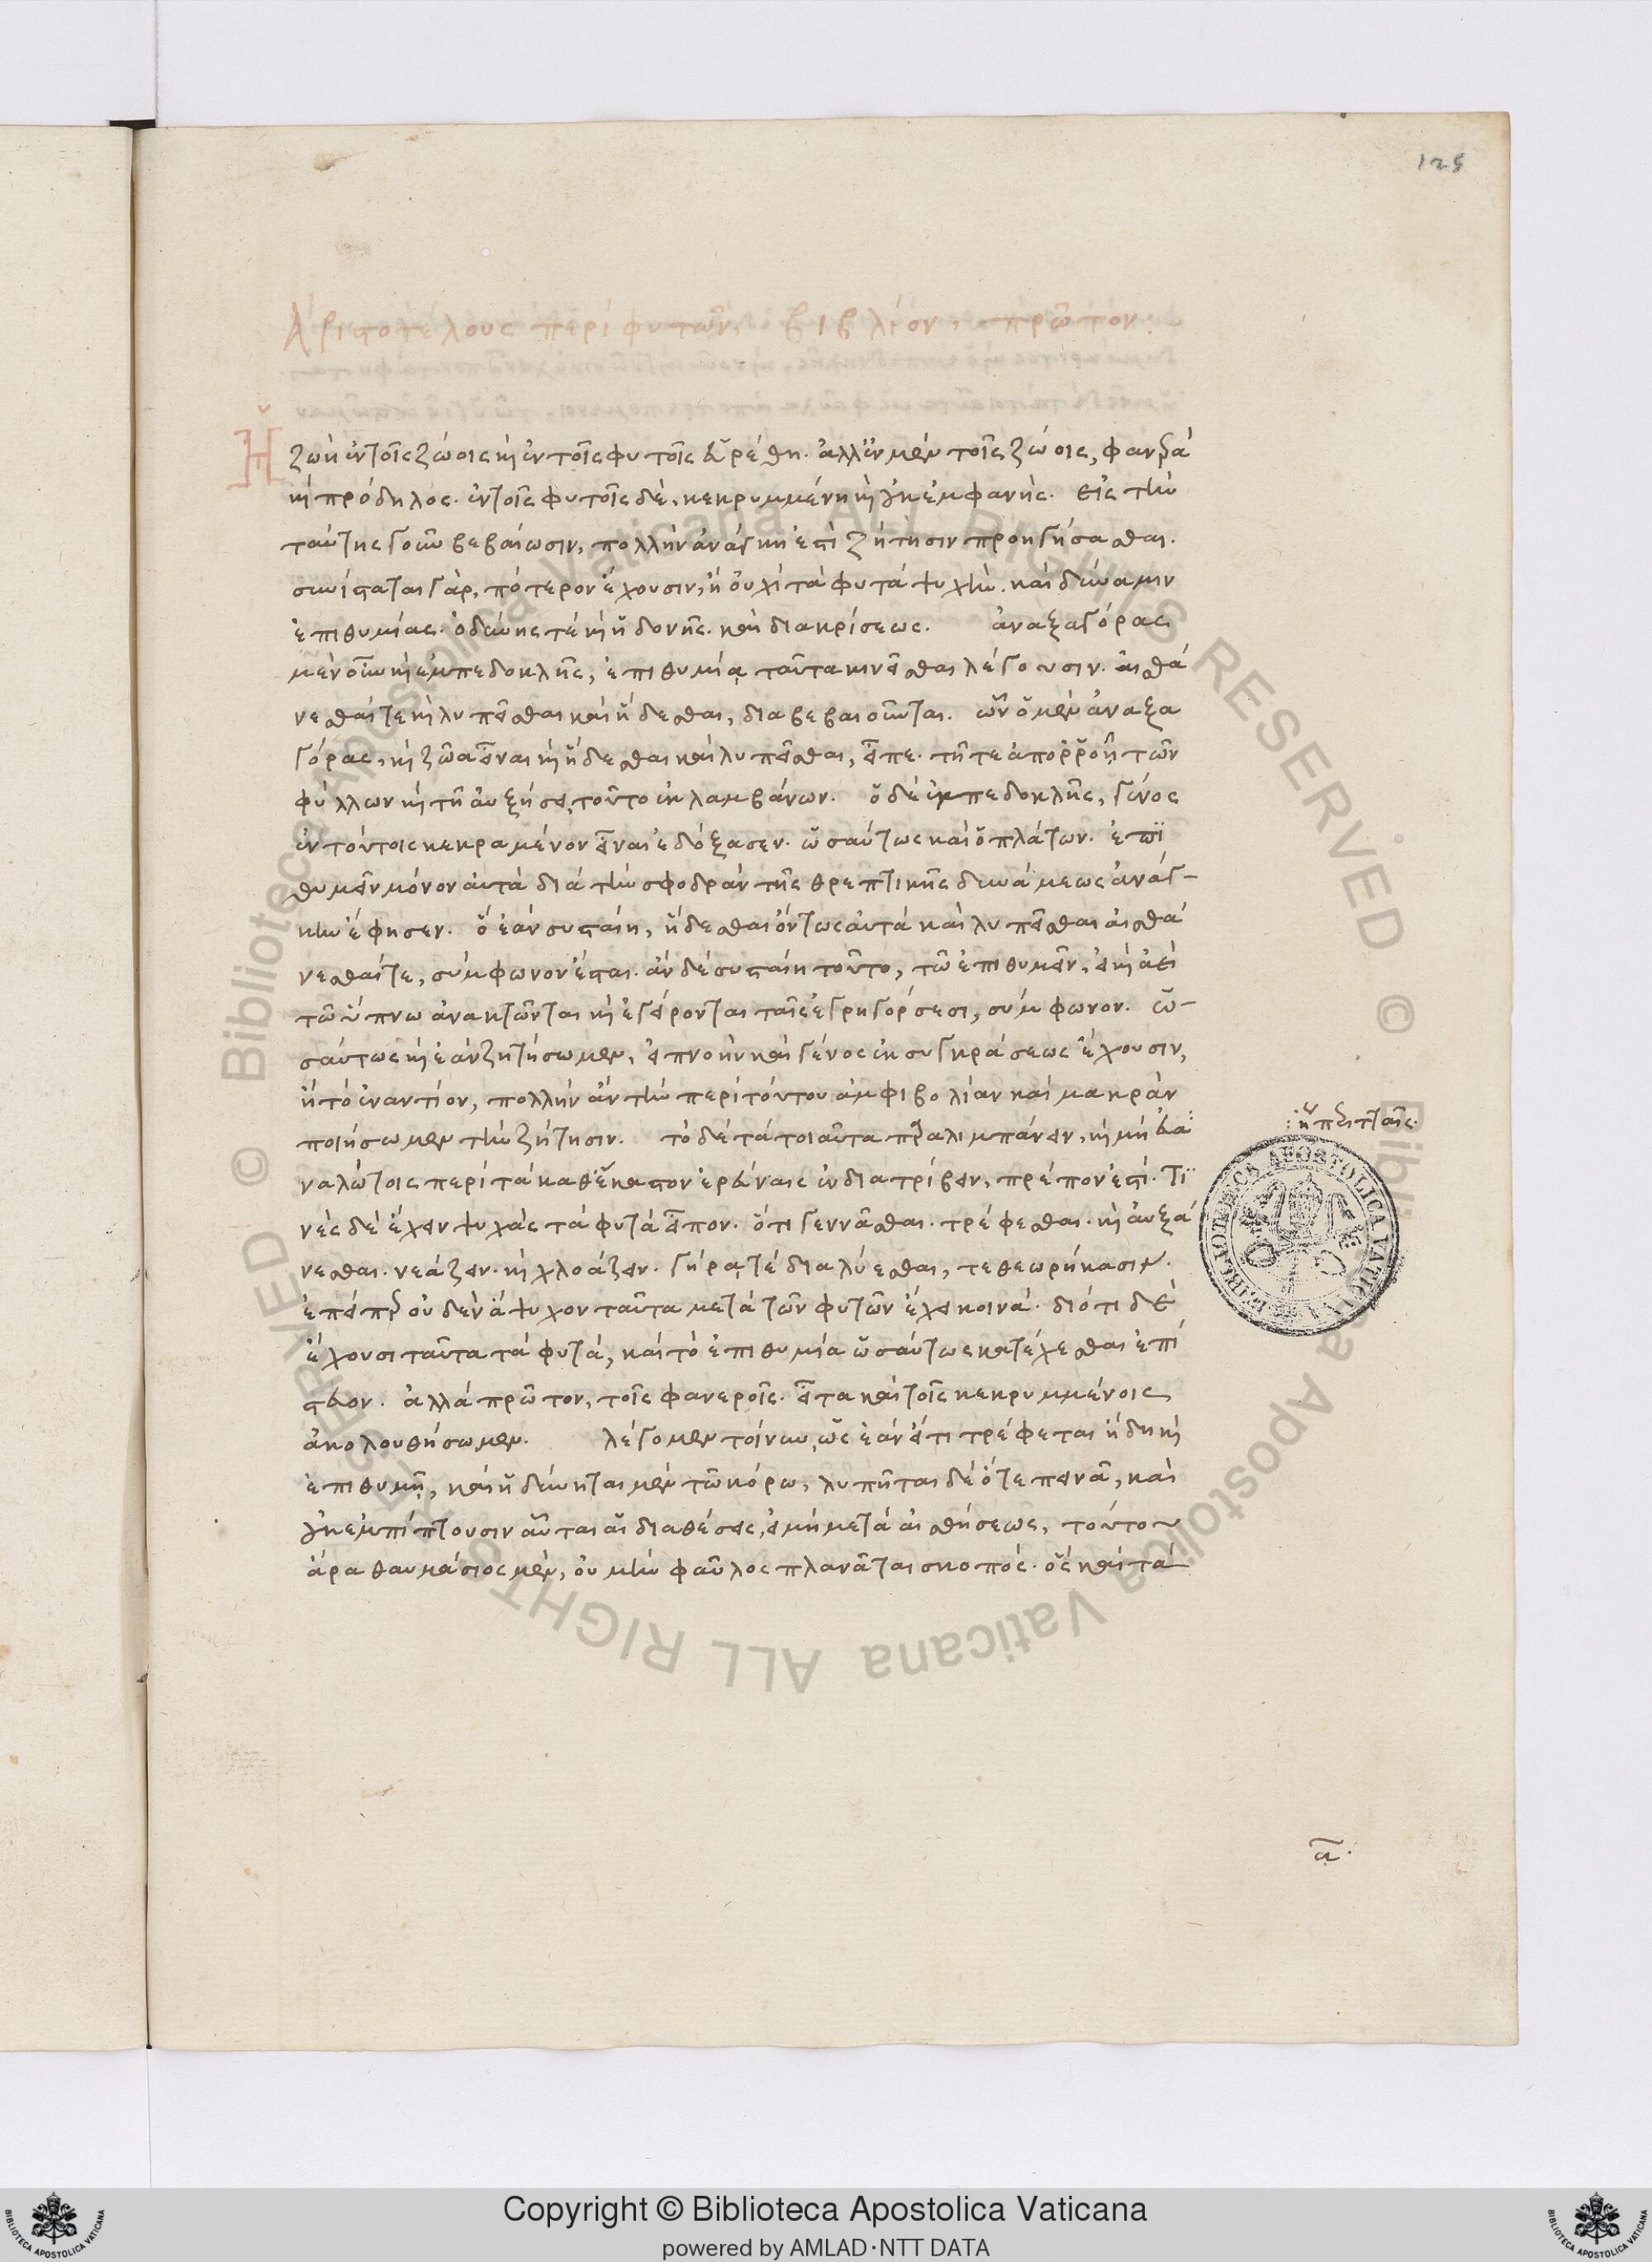 125
Ἀριστοτέλους περὶ φυτῶν, βιβλίον, πρῶτον:~
Ἡ ζωὴ ἐν τοῖς ζώοις καὶ ἐν τοῖς φυτοῖς εὑρέθη. ἀλλ' ἐν μὲν τοῖς ζώοις, φανερὰ
καὶ πρόδηλος. ἐν τοῖς φυτοῖς δὲ, κεκρυμμένη καὶ οὐκ ἐμφανής. εἰς τὴν
ταύτης γοῦν βεβαίωσιν, πολλὴν ἀνάγκη ἐστὶ ζήτησιν προηγήσασθαι.
συνίσταται γὰρ, πότερον ἔχουσιν, ἢ οὐχὶ τὰ φυτὰ ψυχὴν. καὶ δύναμιν
ἐπιθυμίας. ὀδύνης τὲ καὶ ἡδονῆς. καὶ διακρίσεως. ἀναξαγόρας
μὲν οὖν καὶ ἐμπεδοκλῆς, ἐπιθυμίᾳ ταῦτα κινεῖσθαι λέγουσιν. αἰσθά
νεσθαί τε καὶ λυπεῖσθαι καὶ ἥδεσθαι, διαβεβαιοῦνται. ὧν ὁ μὲν ἀναξα
γόρας, καὶ ζῶα εἶναι καὶ ἥδεσθαι καὶ λυπεῖσθαι, εἶπε. τῇ τε ἀπορῥοῇ τῶν
φύλλων καὶ τῇ αὐξήσει, τοῦτο ἐκλαμβάνων. ὁ δὲ ἐμπεδοκλῆς, γένος
ἐν τούτοις κεκραμένον εἶναι ἐδόξασεν. ὡσαύτως καὶ ὁ πλάτων. ἐπι
θυμεῖν μόνον αὐτὰ διὰ τὴν σφοδρὰν τῆς θρεπτικῆς δυνάμεως ἀνάγ-
κην ἔφησεν. ὃ ἐὰν συσταίη, ἥδεσθαι ὄντως αὐτὰ καὶ λυπεῖσθαι αἰσθά
νεσθαί τε, σύμφωνον ἔσται. ἂν δὲ συσταίη τοῦτο, τῶ ἐπιθυμεῖν, εἰ καὶ ἀεὶ
τῶ ὕπνω ἀνακτῶνται καὶ ἐγείρονται ταῖς ἐγρηγόρσεσι, σύμφωνον. ὡ-
σαύτως καὶ ἐὰν ζητήσωμεν, εἰ πνοὴν καὶ γένος ἐκ συγκράσεως ἔχουσιν,
ἢ τὸ ἐναντίον, πολλὴν ἂν τὴν περὶ τούτου ἀμφιβολίαν καὶ μακρὰν
ποιήσωμεν τὴν ζήτησιν. τὸ δὲ τὰ τοιαῦτα παραλιμπάνειν, καὶ μὴ εὐα
ναλώτοις περὶ τὰ καθ' ἕκαστον ἐρεύναις ἐνδιατρίβειν, πρέπον ἐστί. Τι
νὲς δὲ ἔχειν ψυχὰς τὰ φυτὰ εἶπον. ὅτι γεννᾶσθαι. τρέφεσθαι. καὶ αὐξά
νεσθαι. νεάζειν. καὶ χλοάζειν. γήρᾳ τὲ διαλύεσθαι, τεθεωρήκασιν.
ἐπείπερ οὐδὲν ἄψυχον ταῦτα μετὰ τῶν φυτῶν ἔχει κοινά. διότι δὲ
ἔχουσι ταῦτα τὰ φυτὰ, καὶ τὸ ἐπιθυμία ὡσαύτως κατέχεσθαι ἐπί
στευον. ἀλλὰ πρῶτον, τοῖς φανεροῖς. εἶτα καὶ τοῖς κεκρυμμένοις
ἀκολουθήσωμεν. λέγομεν τοίνυν, ὡς ἐὰν εἴ τι τρέφεται ἤδη καὶ
ἐπιθυμῇ, καὶ ἡδύνηται μὲν τῶ κόρω, λυπῆται δὲ ὅτε πεινᾶ, καὶ
οὐκ ἐμπίπτουσιν αὗται αἱ διαθέσεις, εἰ μὴ μετὰ αἰσθήσεως, τούτου
ἄρα θαυμάσιος μὲν, οὐ μὴν φαῦλος πλανᾶται σκοπός. ὃς καὶ τὰ
α.
Copyright © Biblioteca Apostolica Vaticana
powered by AMLAD·NTT DATA